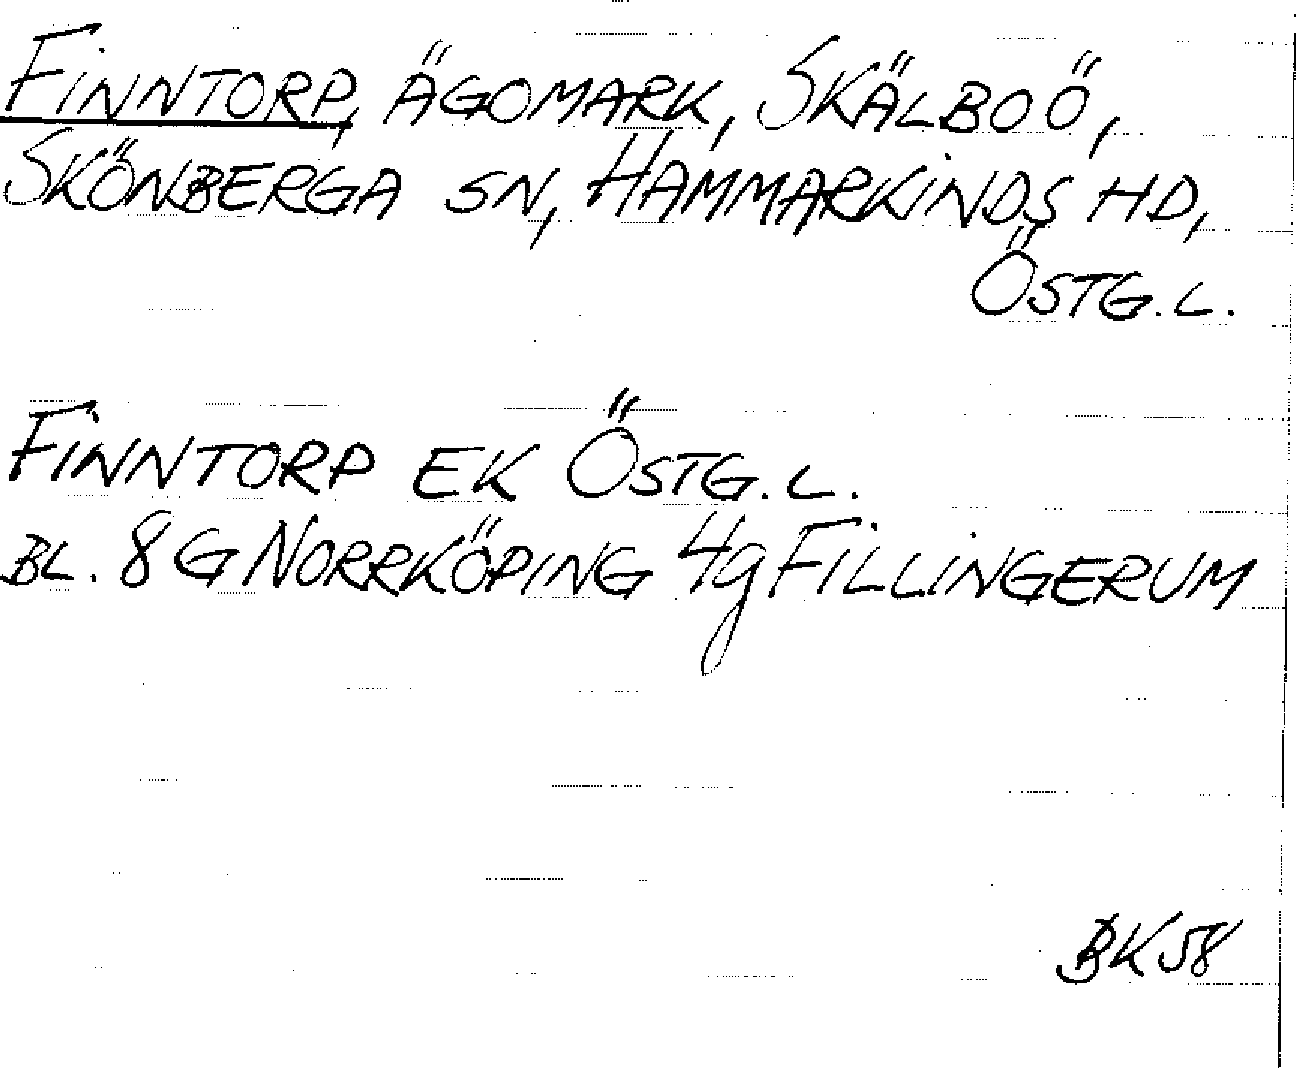 FINNTORP, ÄGOMARK, SKÄLBOÖ,
SKÖNBERGA SN, HAMMARKINDS HD,
ÖSTG. L.
FINNTORP EK ÖSTG. L.
BL. 8 G NORRKÖPING 4g FILLINGERUM
BK 58